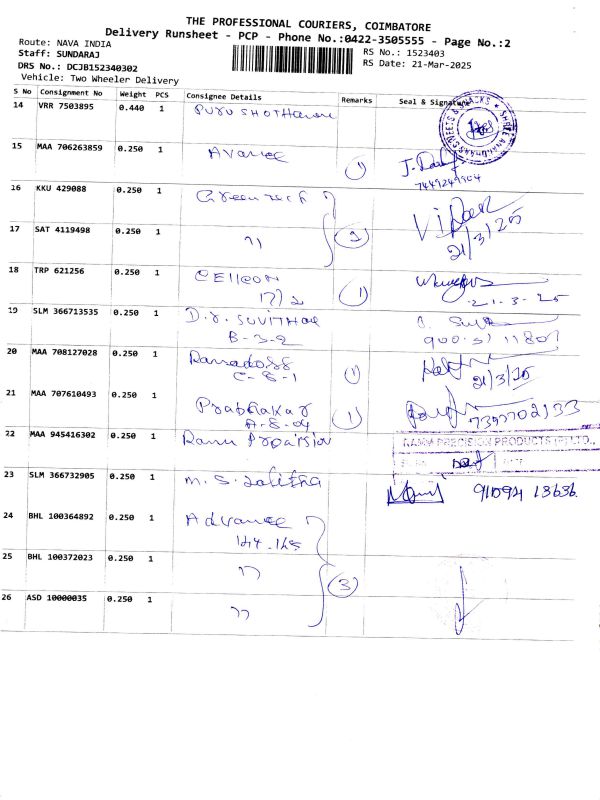 THE PROFESSIONAL COURIERS, COIMBATORE
Delivery Runsheet - PCP - Phone No.:0422-3505555 - Page No.:2
Route: NAVA INDIA
Staff: SUNDARAJ
RS No.: 1523403
DRS No.: DCJB152340302
RS Date: 21-Mar-2025
Vehicle: Two Wheeler Delivery
S No Consignment No Weight PCS Consignee Details Remarks Seal & Signature
14 VRR 7503895 0.440 1
15 MAA 706263859 0.250 1 Avanee 1
7449249904
16 KKU 429088 0.250 1 Greentech
17 SAT 4119498 0.250 1 " 2
21/3/25
18 TRP 621256 0.250 1 1
21-3-25
19 SLM 366713535 0.250 1
B-3-2
20 MAA 708127028 0.250 1 Ramadoss 1
C-8-1
21/3/25
21 MAA 707610493 0.250 1 Prabhakar 1
A-8-04
22 MAA 945416302 0.250 1
PRECISION PRODUCTS (P) LTD.,
23 SLM 366732905 0.250 1 M.S. Lalitha
24 BHL 100364892 0.250 1 Advance
25 BHL 100372023 0.250 1 " 3
26 ASD 10000035 0.250 1 "